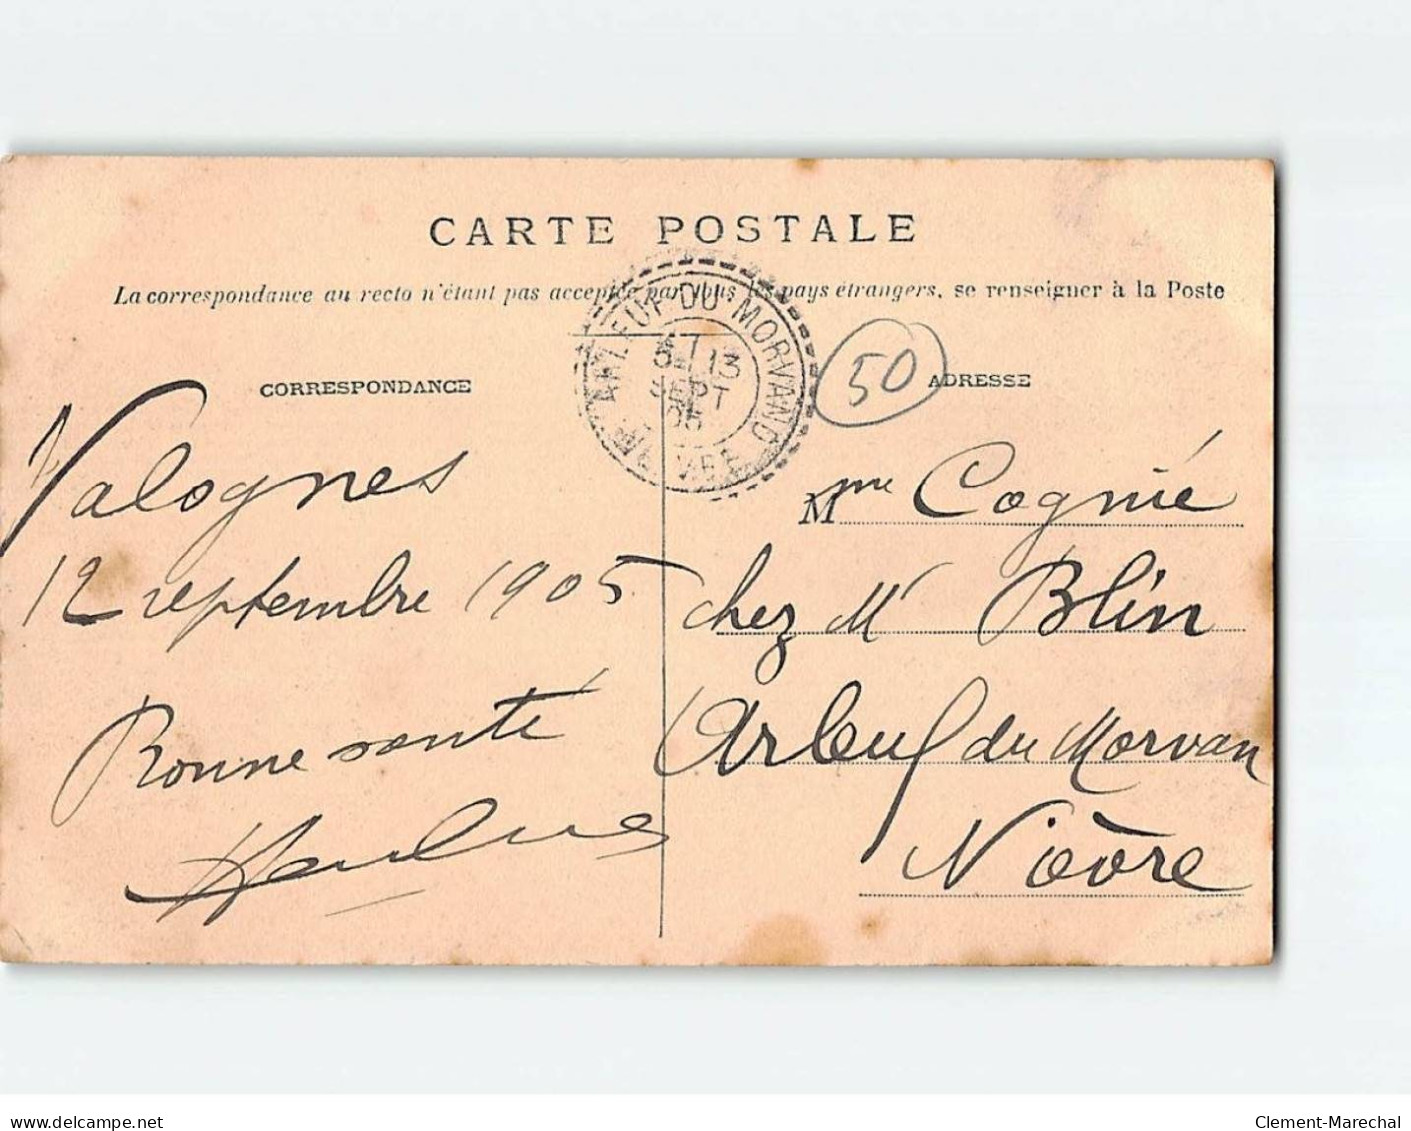 CARTE POSTALE
La correspondance au recto n'étant pas acceptée par tous les pays étrangers, se renseigner à la Poste
ARLEUF DU MORVAND
13
SEPT
05
NIÈVRE
50
CORRESPONDANCE
ADRESSE
Valognes
12 septembre 1905
Bonne santé
Mme Cognié
chez Mr Blin
Arleuf du Morvan
Nièvre
www.delcampe.net
Clement-Marechal